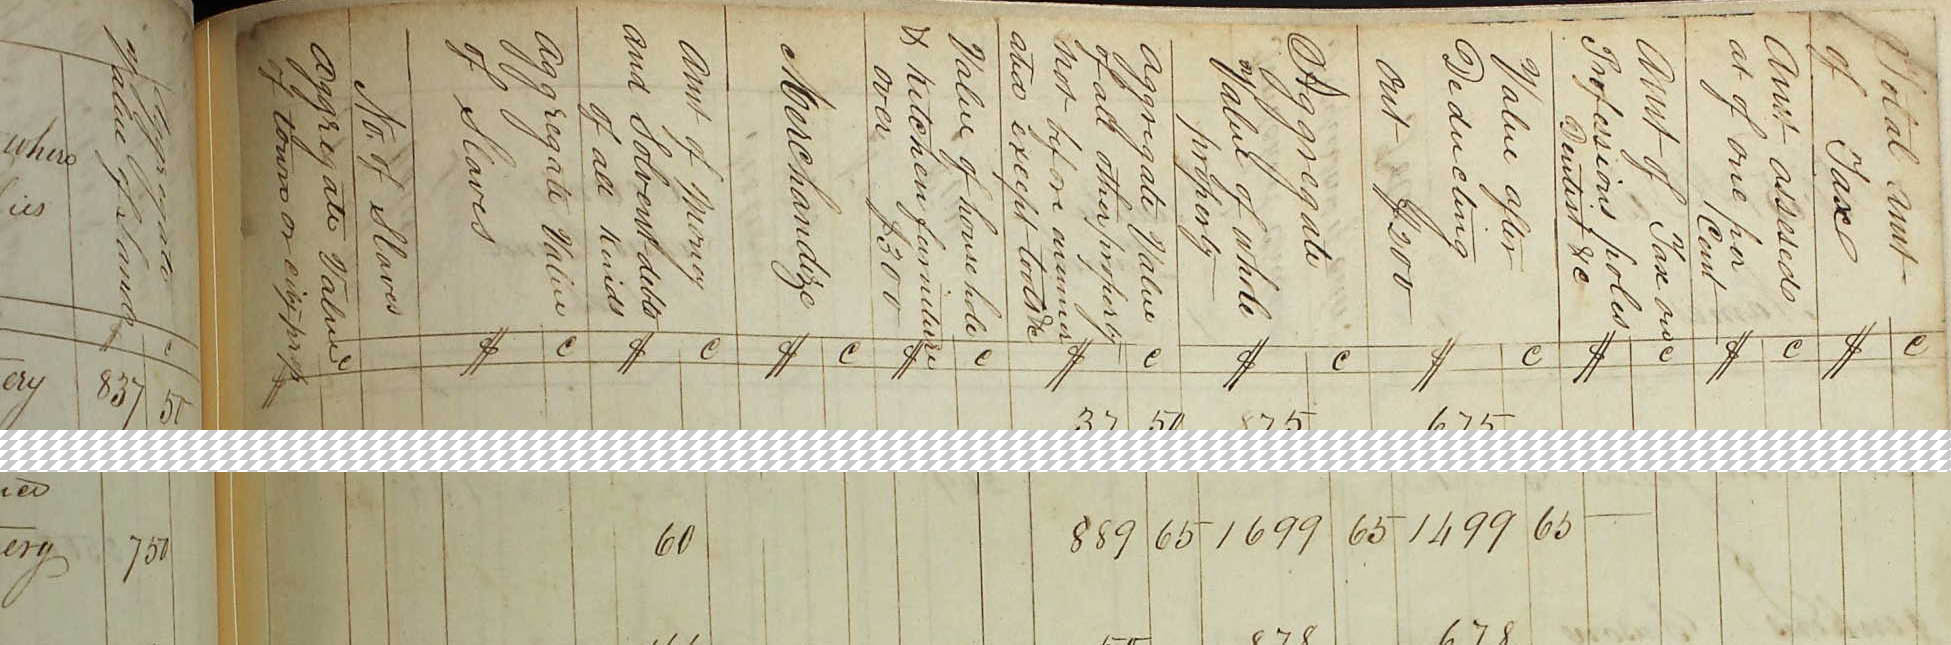 where
lies
Aggregate
Value of Lands
$ c
ery 837 50
Aggregate Value
of town or city prop
$ c
No. of Slaves
Aggregate Value
of Slaves
$ c
Amt of Money
and Solvent debts
of all kinds
$ c
Merchandize
$ c
Value of household
& Kitchen furniture
over $300
$ c
Aggregate Value
of all other property
not before enumer
ated except tools &c
$ c
Aggregate
Value of whole
property
$ c
Value after
Deducting
out $200
$ c
Amt of Tax on
Professions poles
Dentist &c
$ c
Amt assesed
at of one per
Cent
$ c
Total amt
of Tax
$ c
37 50 875 675
ery 750 60 889 65 1699 65 1499 65
878 678